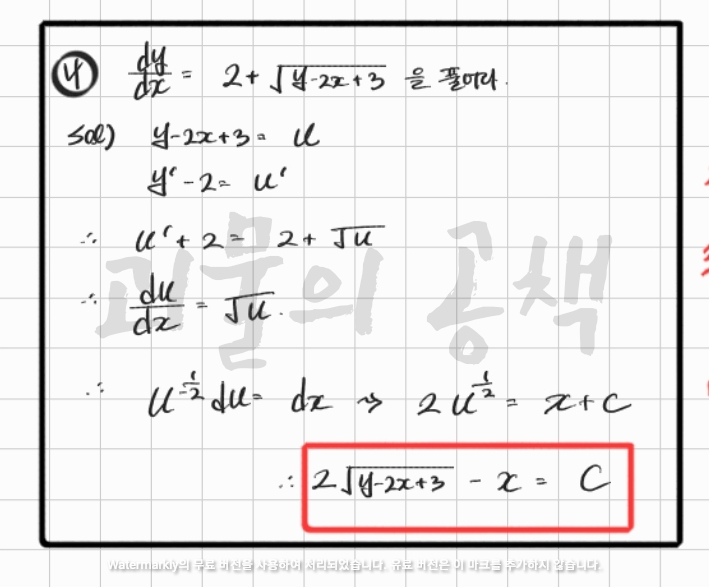 ④ dy/dx = 2 + √(y-2x+3) 을 풀어라.
sol) y-2x+3 = u
y' - 2 = u'
∴ u' + 2 = 2 + √u
괴물의 공책
∴ du/dx = √u.
∴ u^(-1/2) du = dx ⇝ 2u^(1/2) = x + c
∴ 2√(y-2x+3) - x = C
Watermarkly의 무료 버전을 사용하여 처리되었습니다. 유료 버전은 이 마크를 추가하지 않습니다.